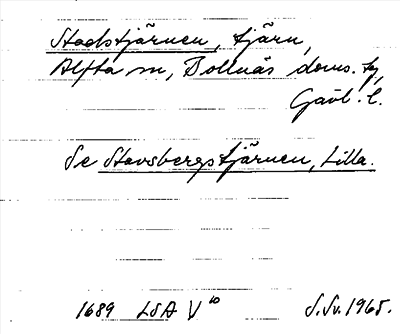 Stadstjärnen, tjärn,
Alfta sn, Bollnäs doms. tg,
Gävl. l.
Se Stavsbergstjärnen, Lilla.
1689 LSA V 10
S. Sv. 1965.